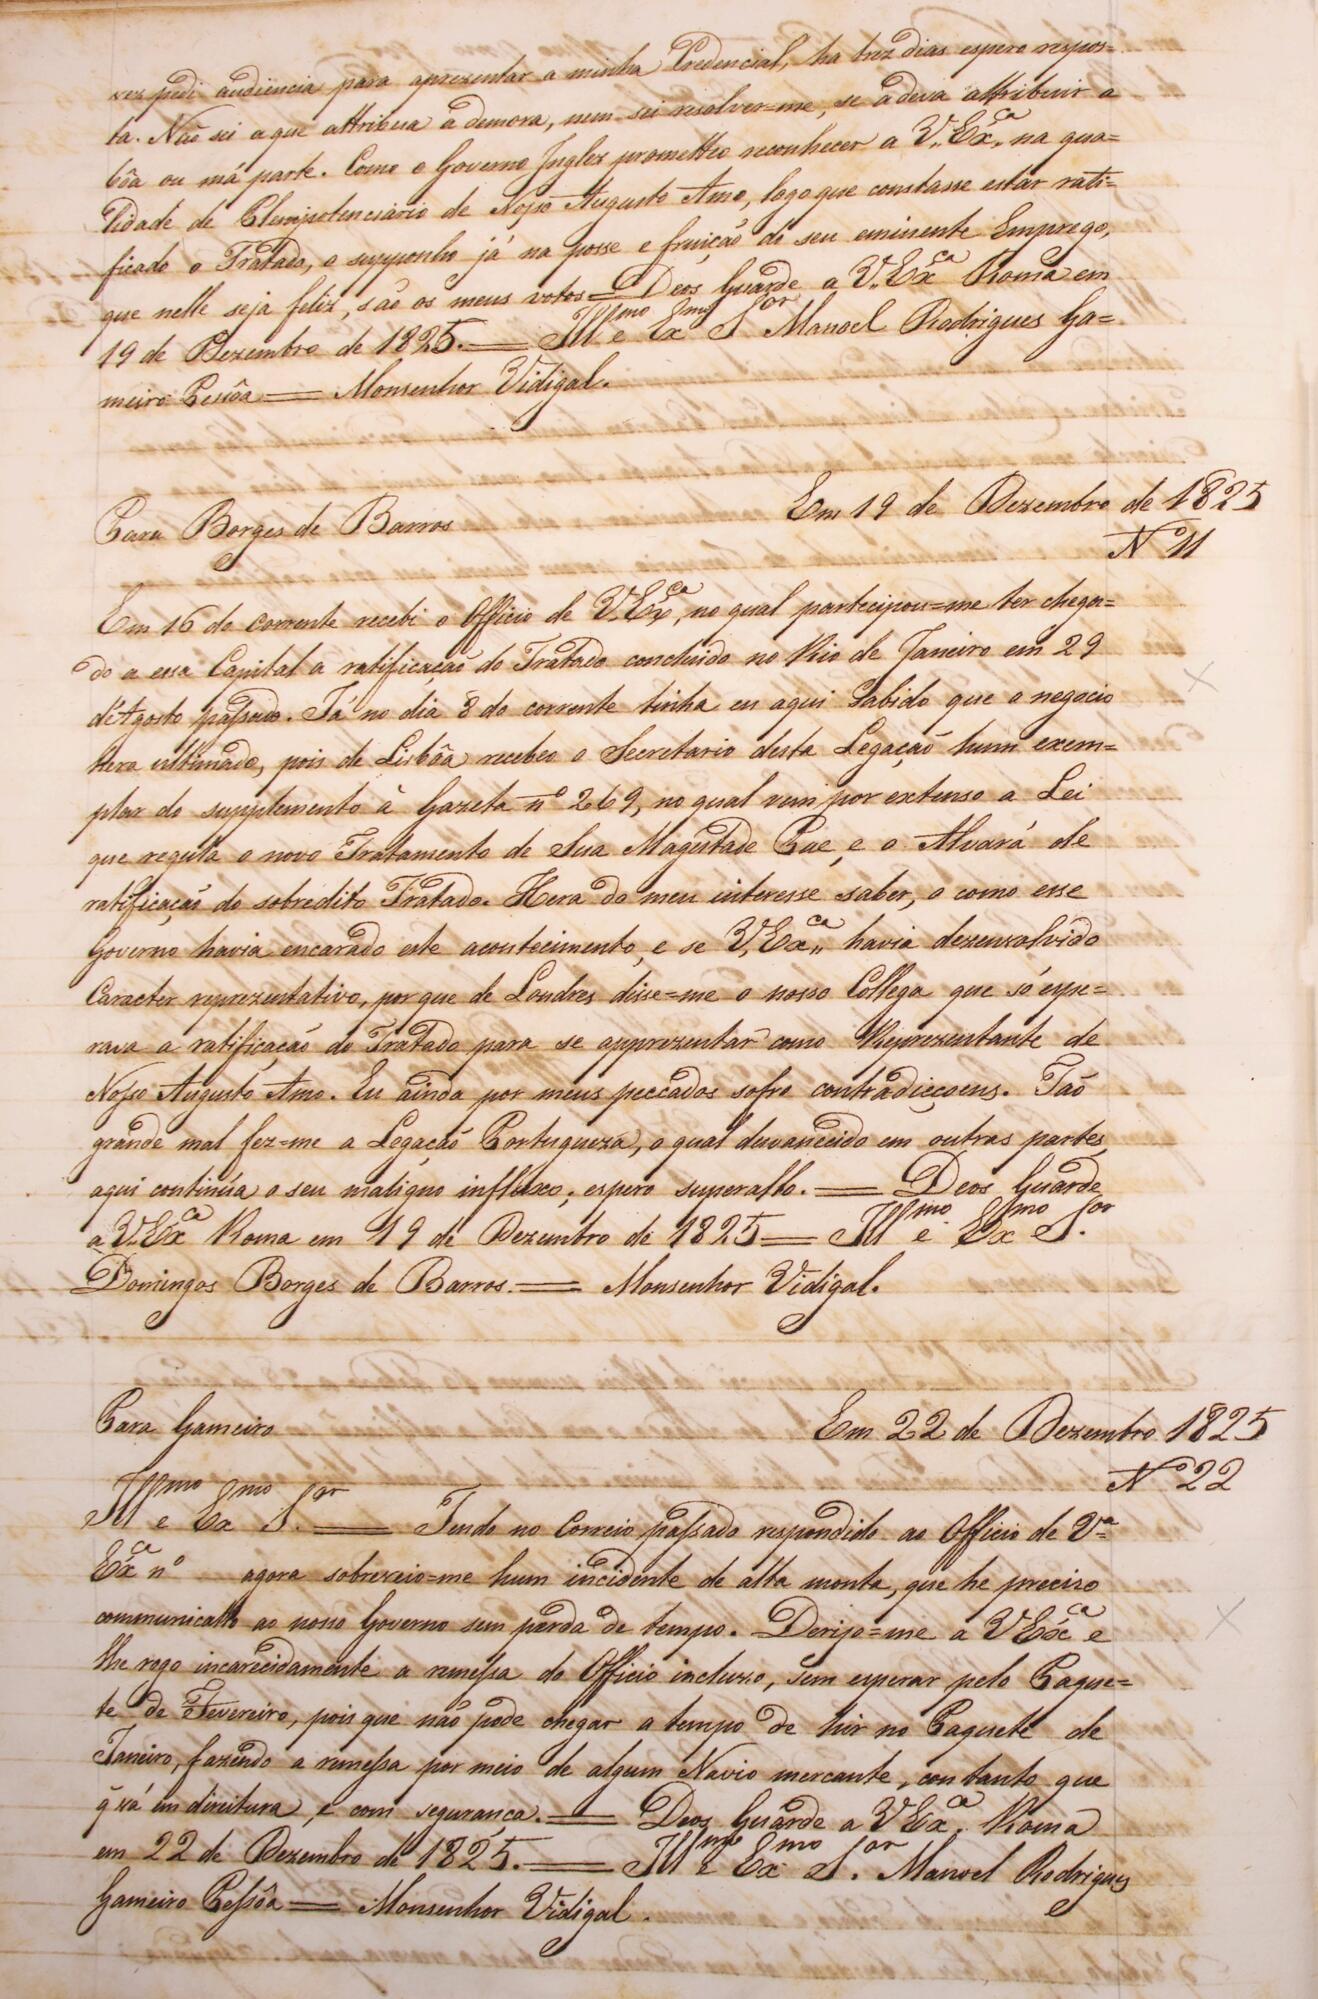 vez pedi audiencia para aprezentar a minha Credencial, ha trez dias espero respos=
ta. Não sei a que attribua a demora, nem sei resolver=me, se a deva attribuir a
bôa ou má parte. Como o Governo Inglez prometteo reconhecer a V. Exca. na qua=
lidade de Plenipotenciario de Nosso Augusto Amo, logo que constasse estar rati=
ficado o Tratado, o supponho já na posse e fruição de seu eminente Emprego,
que nelle seja feliz, são os meus votos = Deos Guarde a V. Exca Roma em
19 de Dezembro de 1825. = Illmo e Exmo Sor Manoel Rodrigues Ga=
meiro Pessôa = Monsenhor Vidigal.
Para Borges de Barros Em 19 de Dezembro de 1825
No 11
Em 16 do corrente recebi o Officio de V. Exca, no qual partecipou=me ter chega=
do a essa Capital a ratificação do Tratado concluido no Rio de Janeiro em 29
d'Agosto passado. Já no dia 8 do corrente tinha eu aqui sabido que o negocio
hera ultimado, pois de Lisbôa recebeo o Secretario desta Legação hum exem=
plar do supplemento à Gazeta no 269, no qual vem por extenso a Lei
que regula o novo Tratamento de Sua Magestade Pae, e o Alvará de
ratificação do sobredito Tratado. Hera do meu interesse saber, o como esse
Governo havia encarado este acontecimento, e se V. Exca. havia dezenvolvido
Caracter reprezentativo, por que de Londres disse=me o nosso Collega que só espe=
rava a ratificação do Tratado para se apprezentar como Reprezentante de
Nosso Augusto Amo. Eu ainda por meus peccados sofro contradiçoens. Tão
grande mal fez=me a Legação Portugueza, o qual desvanecido em outras partes,
aqui continúa o seu maligno influxo; espero superallo. = Deos Guarde
a V. Exca Roma em 19 de Dezembro de 1825 = Illmo e Exmo Sor.
Domingos Borges de Barros. = Monsenhor Vidigal.
Para Gameiro Em 22 de Dezembro 1825
No 22
Illmo e Exmo Sor. = Tendo no Correio passado respondido ao Officio de Va
Exca no agora sobreveio=me hum incidente de alta monta, que he precizo
communicallo ao nosso Governo sem perda de tempo. Derijo=me a V Exca e
lhe rogo incarecidamente a remessa do Officio incluzo, sem esperar pelo Paque=
te de Fevereiro, pois que não pode chegar a tempo de hir no Paquete de
Janeiro, fazendo a remessa por meio de algum Navio mercante, con tanto que
q̃ vá em direitura, e com segurança. = Deos Guarde a V Exca. Roma
em 22 de Dezembro de 1825. = Illmo e Exmo Sor. Manoel Rodrigues
Gameiro Pessôa = Monsenhor Vidigal.